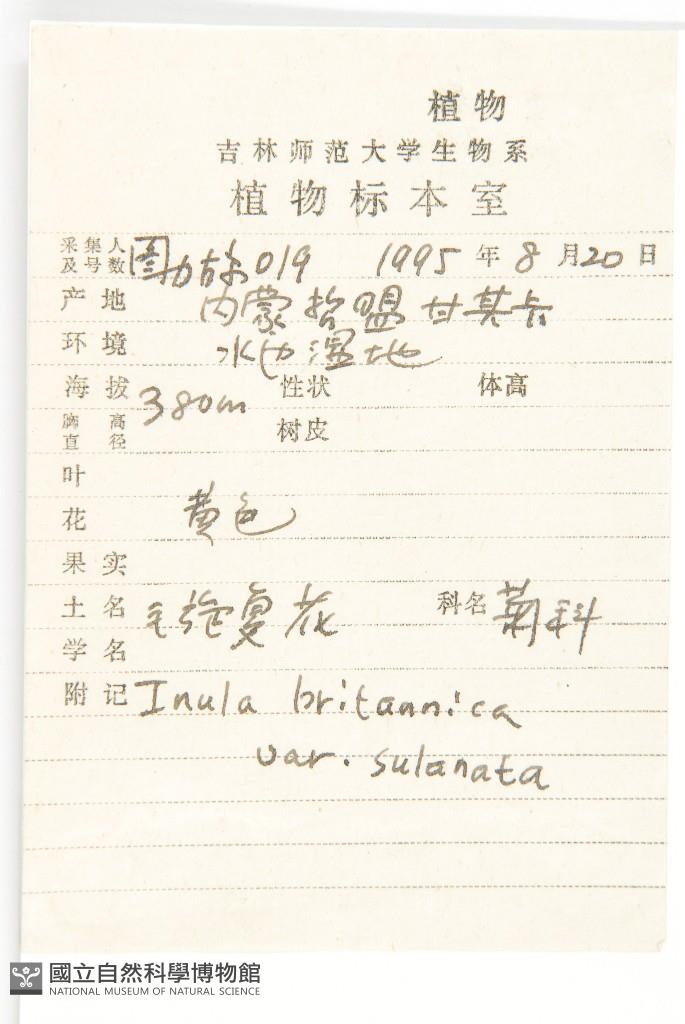 植物
吉林师范大学生物系
植物标本室
采集人及号数 图力古尔 019 1995 年 8 月 20 日
产地 内蒙哲盟甘其卡
环境 水边湿地
海拔 380m 性状 体高
胸高直径 树皮
叶
花 黄色
果实
土名 毛旋复花 科名 菊科
学名
附记 Inula britannica
var. sulanata
國立自然科學博物館
NATIONAL MUSEUM OF NATURAL SCIENCE